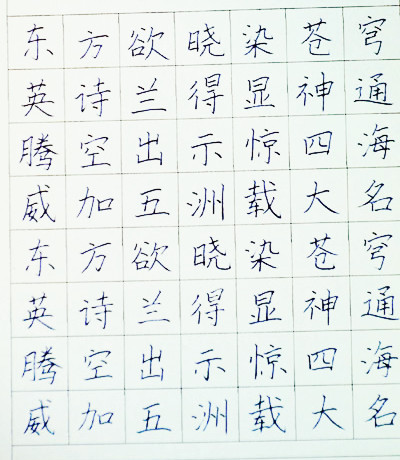 东方欲晓染苍穹
英诗兰得显神通
腾空出示惊四海
威加五洲载大名
东方欲晓染苍穹
英诗兰得显神通
腾空出示惊四海
威加五洲载大名